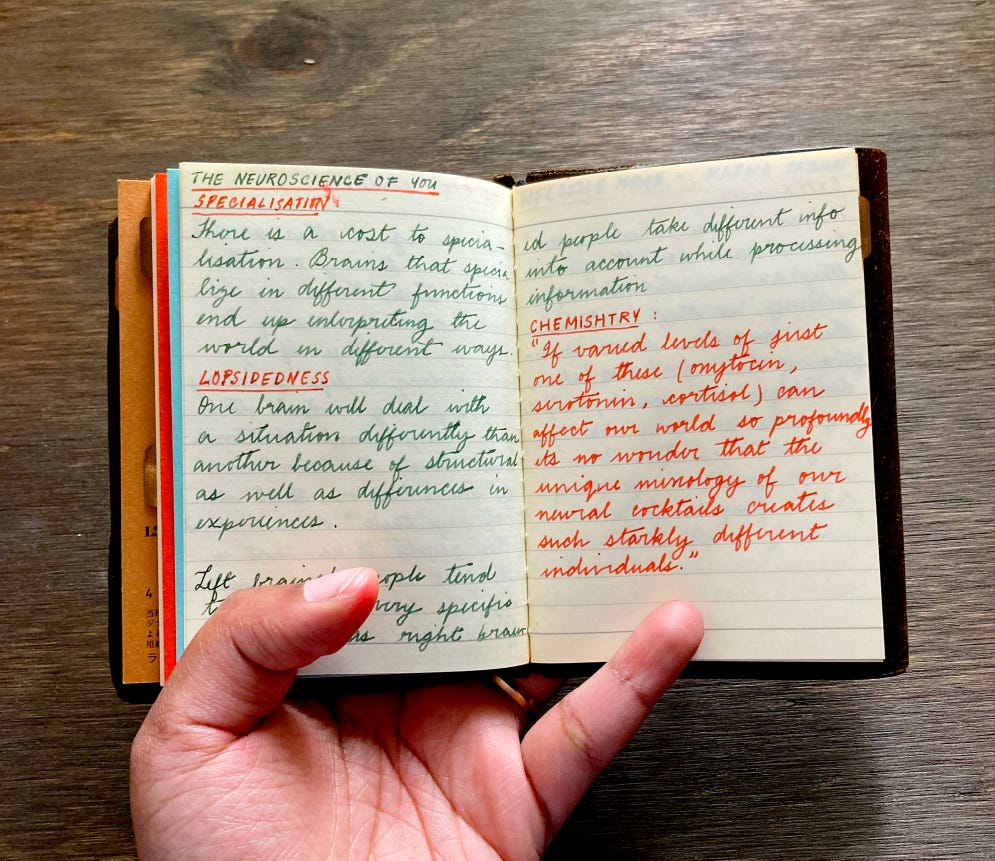 THE NEUROSCIENCE OF YOU
SPECIALISATION
There is a cost to specia-
lisation. Brains that specia
lize in different functions
end up interpreting the
world in different ways.
LOPSIDEDNESS
One brain will deal with
a situation differently than
another because of structural
as well as differences in
experiences.
Left people tend
very specific
right brain
ed people take different info
into account while processing
information
CHEMISHTRY :
"If varied levels of just
one of these (oxytocin,
serotonin, cortisol) can
affect our world so profoundly
its no wonder that the
unique mixology of our
neural cocktails creates
such starkly different
individuals."
4